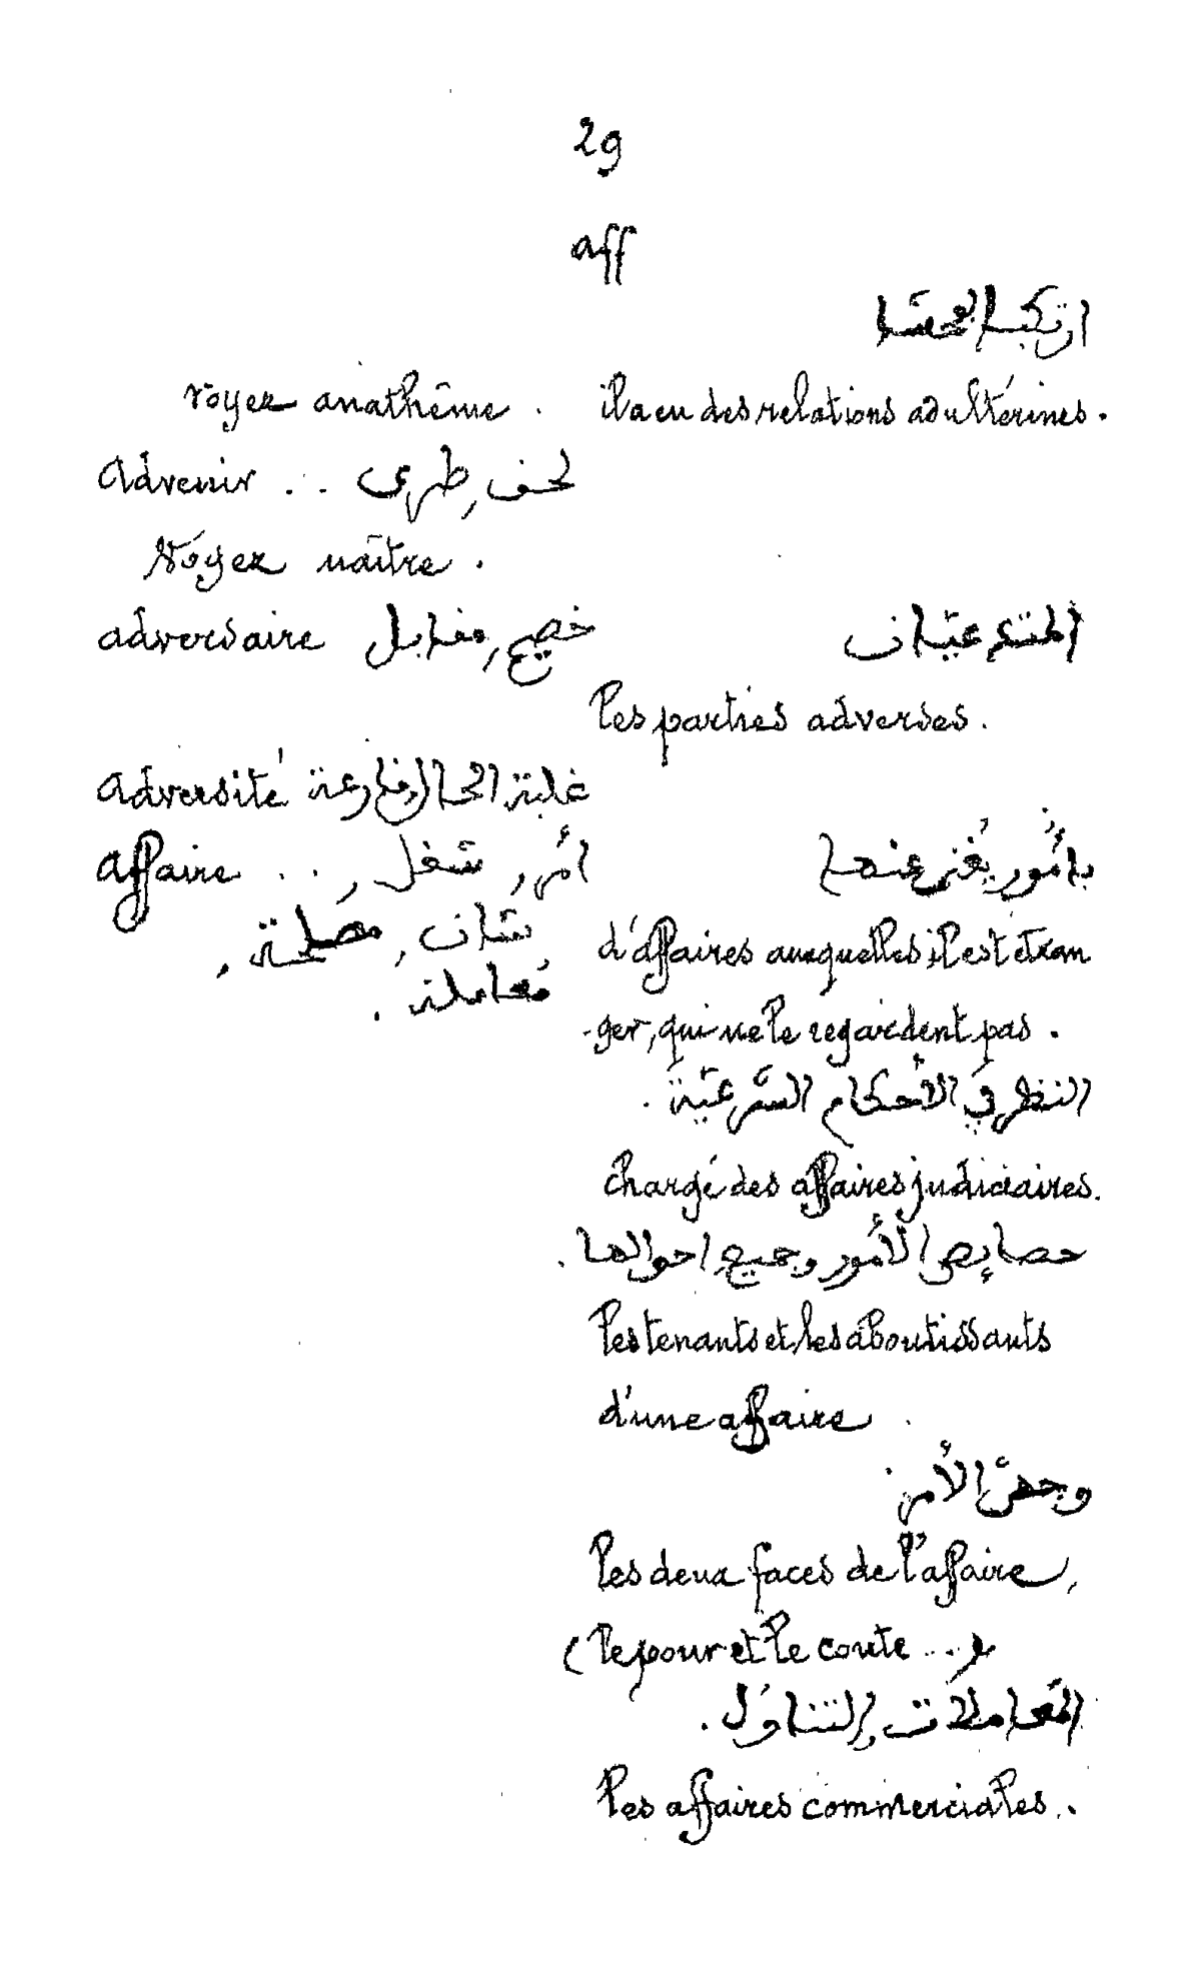 29
aff
ارتكب الفحشا
voyez anathême . il a eu des relations adultérines.
Advenir ... لحق, طرى
Voyez naître.
adversaire خصيم, مقابل المتدعيان
les parties adverses.
Adversité غلبة الحال, قارعة
Affaire ... امُر, شغل, بامُور يُغنى عنها
شان, مصلحة, d'affaires auxquelles il est étran
مُعاملة . -ger, qui ne le regardent pas.
النظر في الأحكام الشّرعيّة .
chargé des affaires judiciaires.
خصايص الأمور وجميع احوالها .
les tenants et les aboutissants
d'une affaire
وجهىْ الأمر
les deux faces de l'affaire,
(le pour et le contre ...)
المعاملات, التناول .
les affaires commerciales.